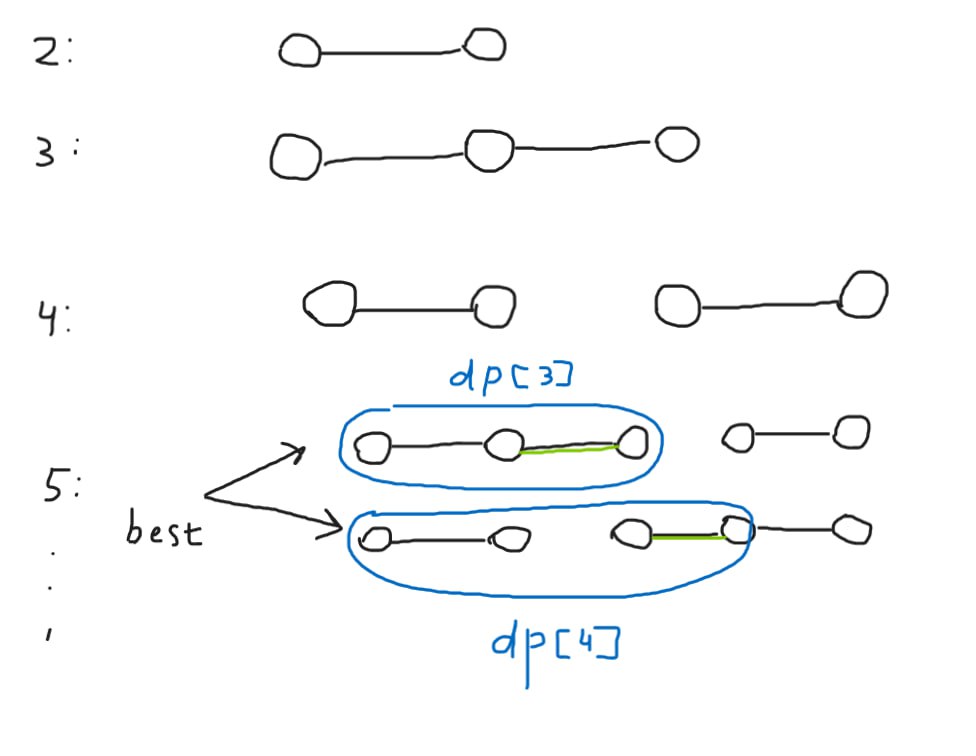 2:
3:
4:
dp[3]
5:
best
dp[4]